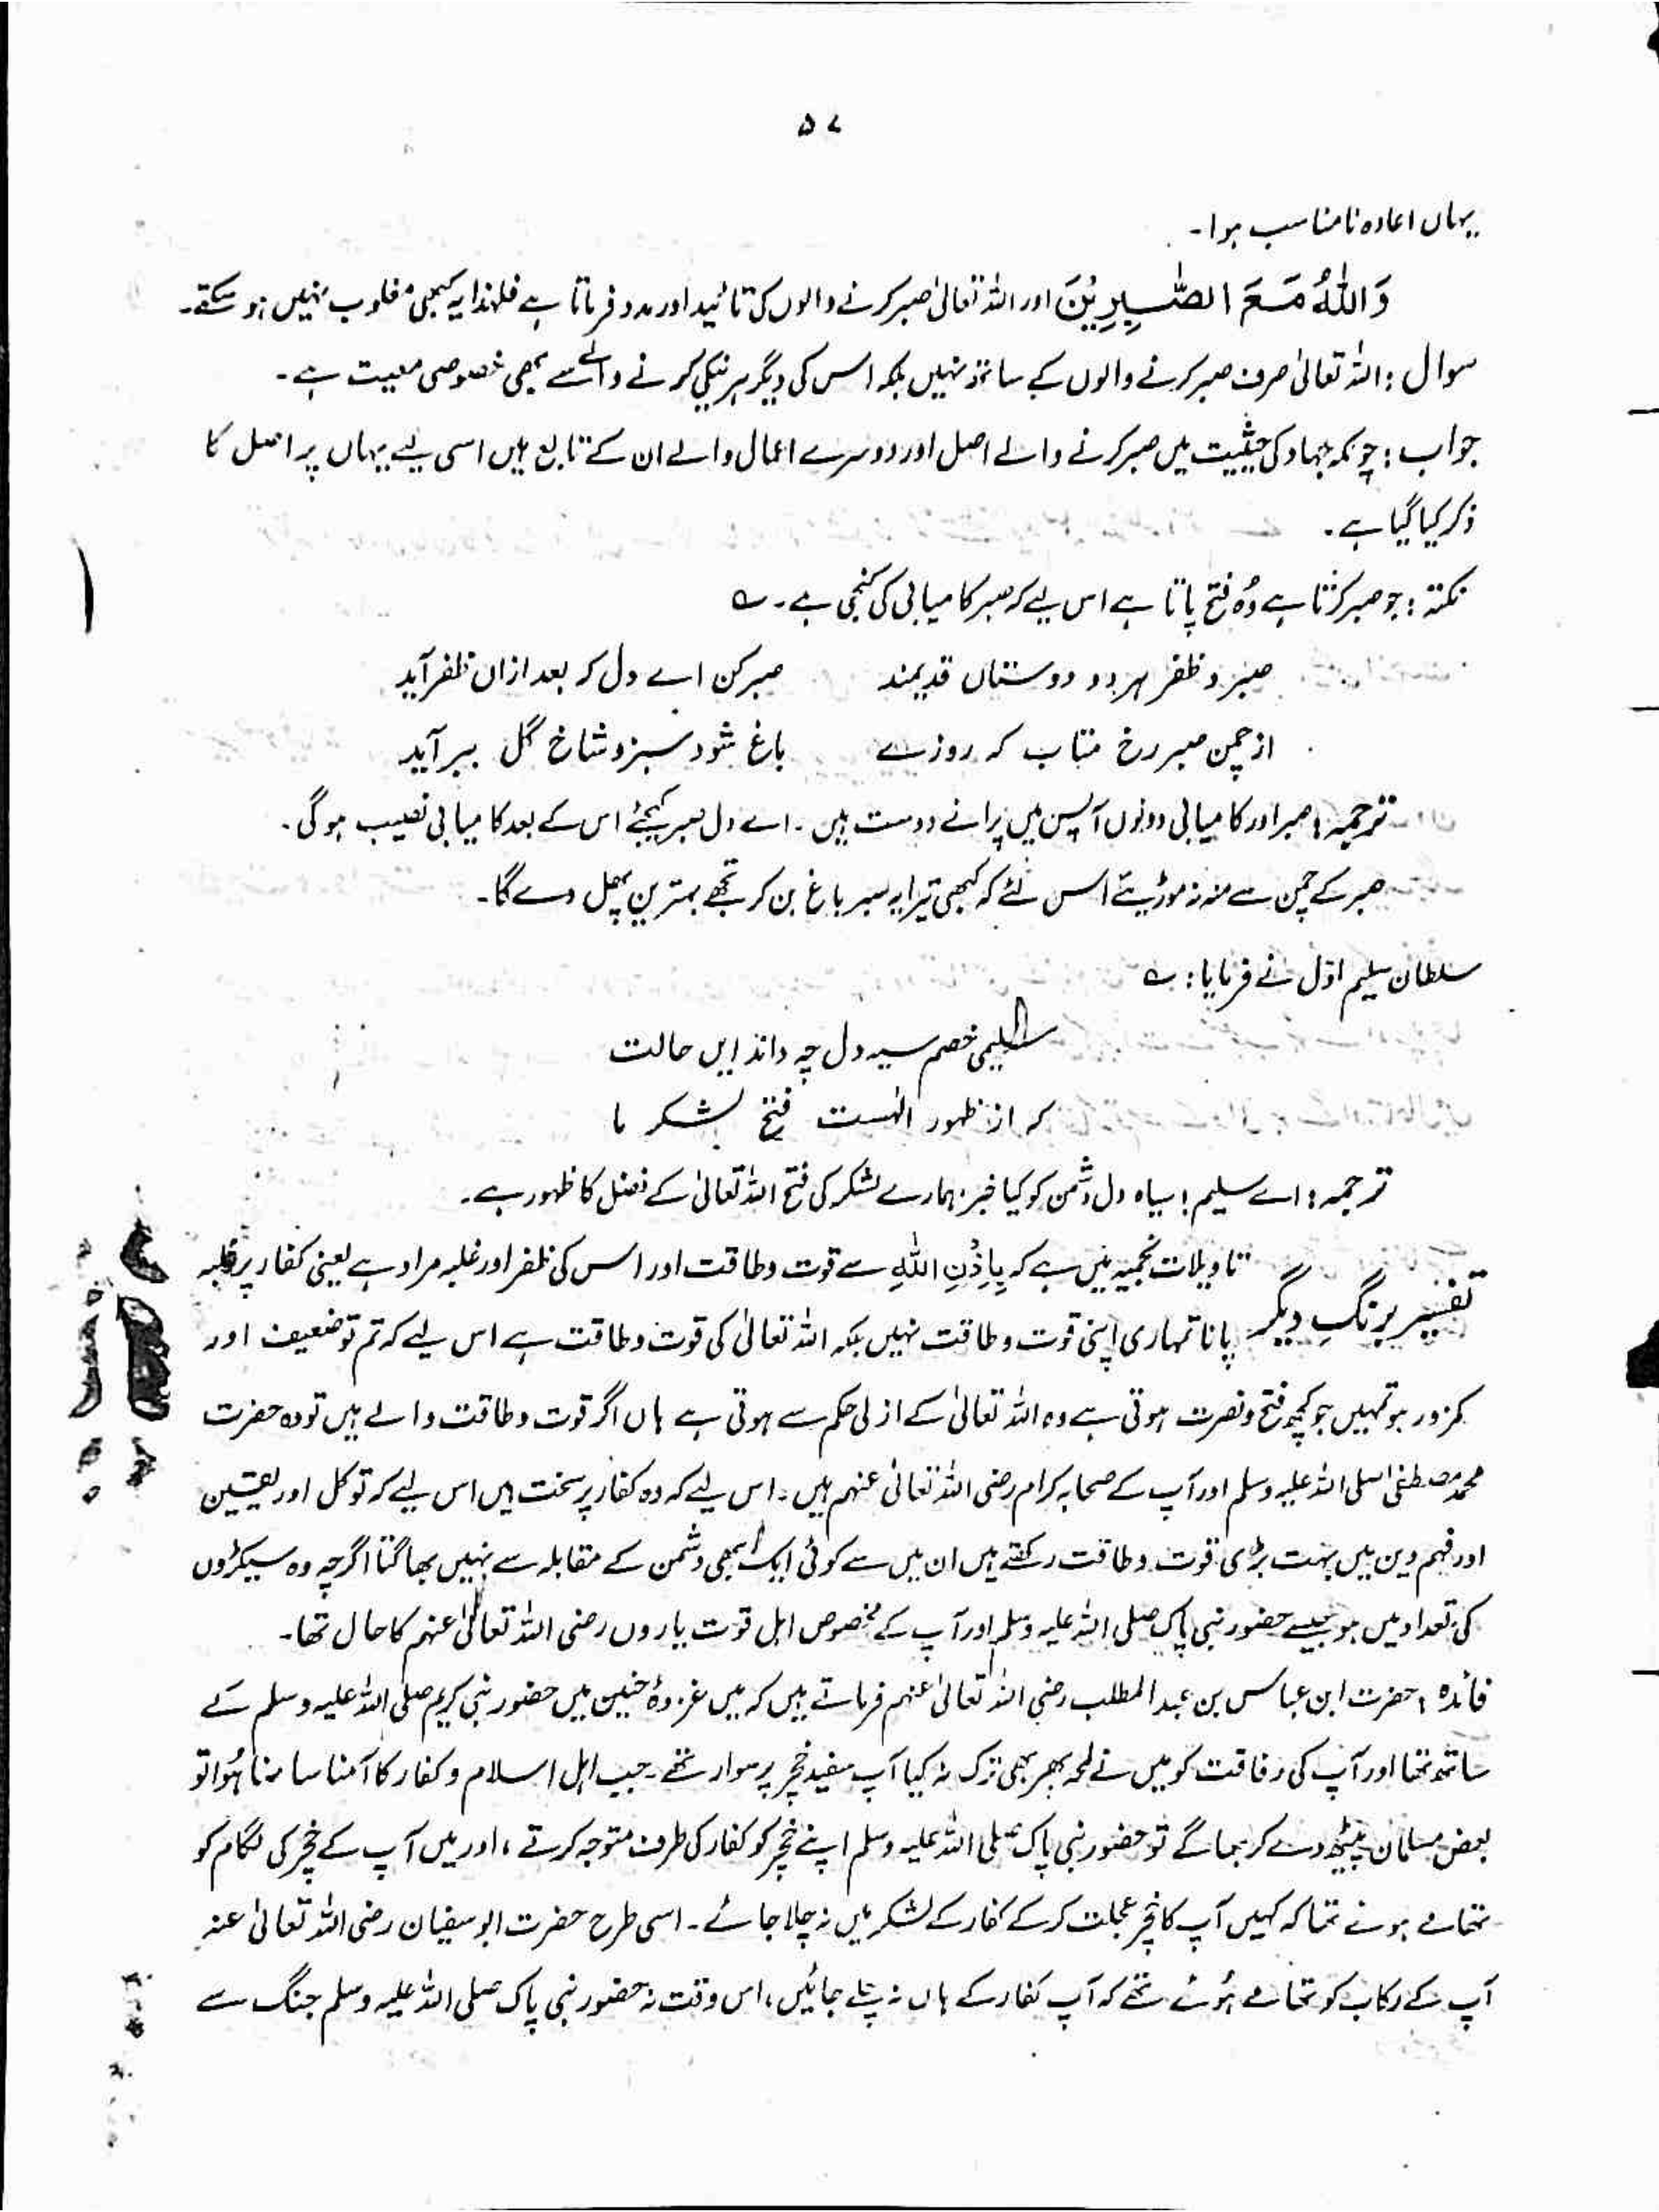 ۵۷
یہاں اعادہ نامناسب ہوا۔
وَاللّٰہُ مَعَ الصّٰبِرِیْنَ اور اللہ تعالیٰ صبر کرنے والوں کی تائید اور مدد فرماتا ہے فلہٰذا یہ کبھی مغلوب نہیں ہو سکتے۔
سوال : اللہ تعالیٰ صرف صبر کرنے والوں کے ساتھ نہیں بلکہ اس کی دیگر ہر نیکی کرنے والے سے بھی خصوصی معیت ہے۔
جواب : چونکہ جہاد کی حیثیت میں صبر کرنے والے اصل اور دوسرے اعمال والے ان کے تابع ہیں اسی لیے یہاں پر اصل کا
ذکر کیا گیا ہے۔
نکتہ : جو صبر کرتا ہے وُہ فتح پاتا ہے اس لیے کہ صبر کامیابی کی کنجی ہے۔ ؎
صبر و ظفر ہر دو دوستان قدیمند صبر کن اے دل کہ بعد ازاں ظفر آید
از چمن صبر رخ متاب کہ روزے باغ شود سبز و شاخ گل ببر آید
ترجمہ : صبر اور کامیابی دونوں آپس میں پرانے دوست ہیں۔ اے دل صبر کیجئے اس کے بعد کامیابی نصیب ہو گی۔
صبر کے چمن سے منہ نہ موڑیئے اس لئے کہ کبھی تیرا یہ صبر باغ بن کر تجھے بہترین پھل دے گا۔
سلطان سلیم اوّل نے فرمایا : ؎
سلیمی خصم سیہ دل چہ داند ایں حالت
کہ از ظہور الہست فتح لشکر ما
ترجمہ : اے سلیم ! سیاہ دل دشمن کو کیا خبر ہمارے لشکر کی فتح اللہ تعالیٰ کے فضل کا ظہور ہے۔
تفسیر برنگِ دیگر تاویلات نجمیہ میں ہے کہ بِاِذْنِ اللّٰہِ سے قوت و طاقت اور اس کی ظفر اور غلبہ مراد ہے یعنی کفار پر غلبہ
پانا تمہاری اپنی قوت و طاقت نہیں بلکہ اللہ تعالیٰ کی قوت و طاقت ہے اس لیے کہ تم تو ضعیف اور
کمزور ہو تمہیں جو کچھ فتح و نصرت ہوتی ہے وہ اللہ تعالیٰ کے ازلی حکم سے ہوتی ہے ہاں اگر قوت و طاقت والے ہیں تو وہ حضرت
محمد مصطفیٰ صلی اللہ علیہ وسلم اور آپ کے صحابہ کرام رضی اللہ تعالیٰ عنہم ہیں۔ اس لیے کہ وہ کفار پر سخت ہیں اس لیے کہ توکل اور یقین
اور فہم دین میں بہت بڑی قوت و طاقت رکھتے ہیں ان میں سے کوئی ایک بھی دشمن کے مقابلہ سے نہیں بھاگتا اگرچہ وہ سیکڑوں
کی تعداد میں ہو جیسے حضور نبی پاک صلی اللہ علیہ وسلم اور آپ کے مخصوص اہل قوت یاروں رضی اللہ تعالیٰ عنہم کا حال تھا۔
فائدہ : حضرت ابن عباس بن عبدالمطلب رضی اللہ تعالیٰ عنہم فرماتے ہیں کہ میں غزوۂ حنین میں حضور نبی کریم صلی اللہ علیہ وسلم کے
ساتھ تھا اور آپ کی رفاقت کو میں نے لمحہ بھر بھی ترک نہ کیا آپ سفید خچر پر سوار تھے۔ جب اہل اسلام و کفار کا آمنا سامنا ہُوا تو
بعض مسلمان پیٹھ دے کر بھاگے تو حضور نبی پاک صلی اللہ علیہ وسلم اپنے خچر کو کفار کی طرف متوجہ کرتے ، اور میں آپ کے خچر کی لگام کو
تھامے ہوئے تھا کہ کہیں آپ کا خچر عجلت کر کے کفار کے لشکر میں نہ چلا جائے۔ اسی طرح حضرت ابو سفیان رضی اللہ تعالیٰ عنہ
آپ کے رکاب کو تھامے ہُوئے تھے کہ آپ کفار کے ہاں نہ چلے جائیں ، اس وقت نہ حضور نبی پاک صلی اللہ علیہ وسلم جنگ سے